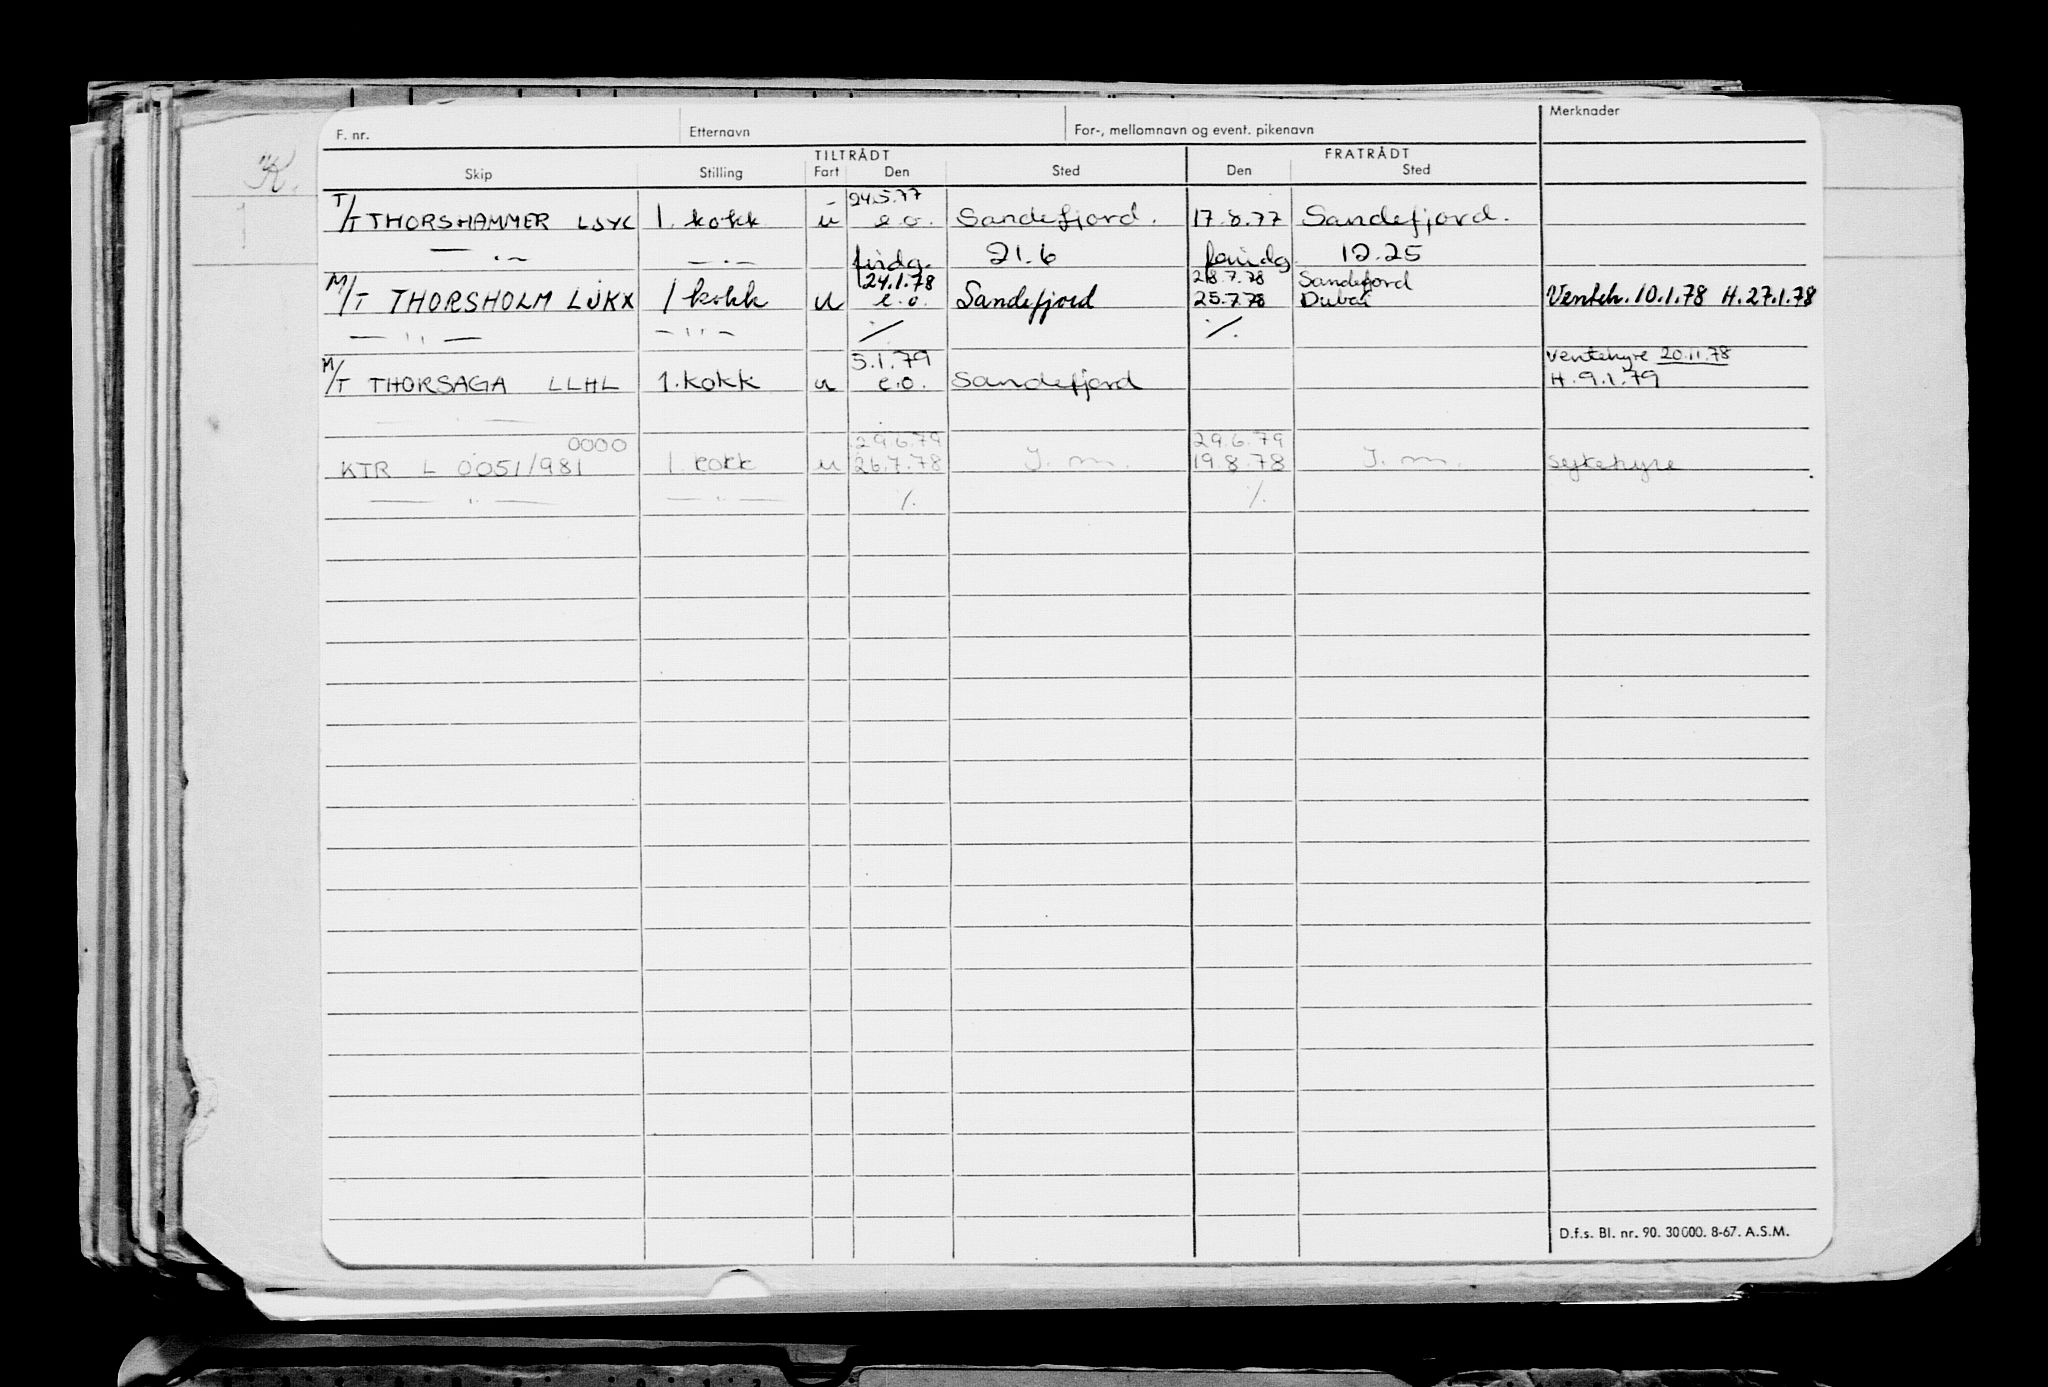 K.
F. nr. Etternavn For-, mellomnavn og event. pikenavn Merknader
TILTRÅDT FRATRÅDT
Skip Stilling Fart Den Sted Den Sted
24.5.77
T/T THORSHAMMER LSYC 1. kokk u e.o. Sandefjord. 17.8.77 Sandefjord.
— . — — . — 21.6 12.25
24.1.78 28.7.78 Sandefjord
M/T THORSHOLM LJKX 1 kokk u e.o. Sandefjord 25.7.78 Dubai Venteh. 10.1.78 H. 27.1.78
— " — — " — ⁒ ⁒
5.1.79 Ventehyre 20.11.78
M/T THORSAGA LLHL 1. kokk u e.o. Sandefjord H. 9.1.79
0000 29.6.79 29.6.79
KTR L 0051/981 1. kokk u 26.7.78 J. m. 19.8.78 J. m. sykehyre
— " — — " — ⁒ ⁒
D.f.s. Bl. nr. 90. 30000. 8-67. A.S.M.